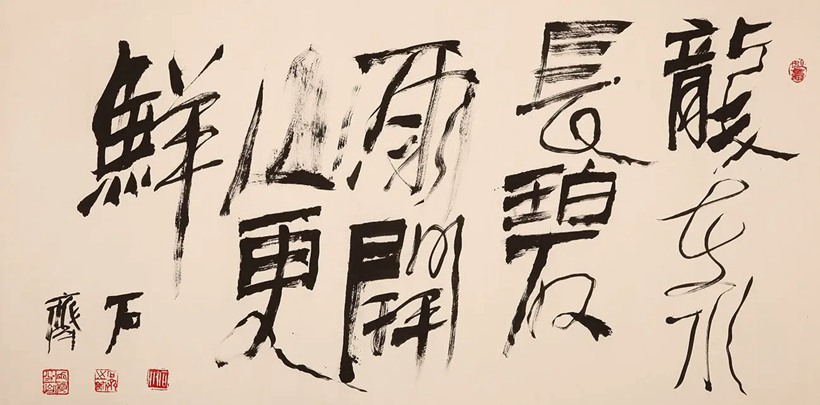 龍在水
長碧
雨開
山更
鮮
石齊